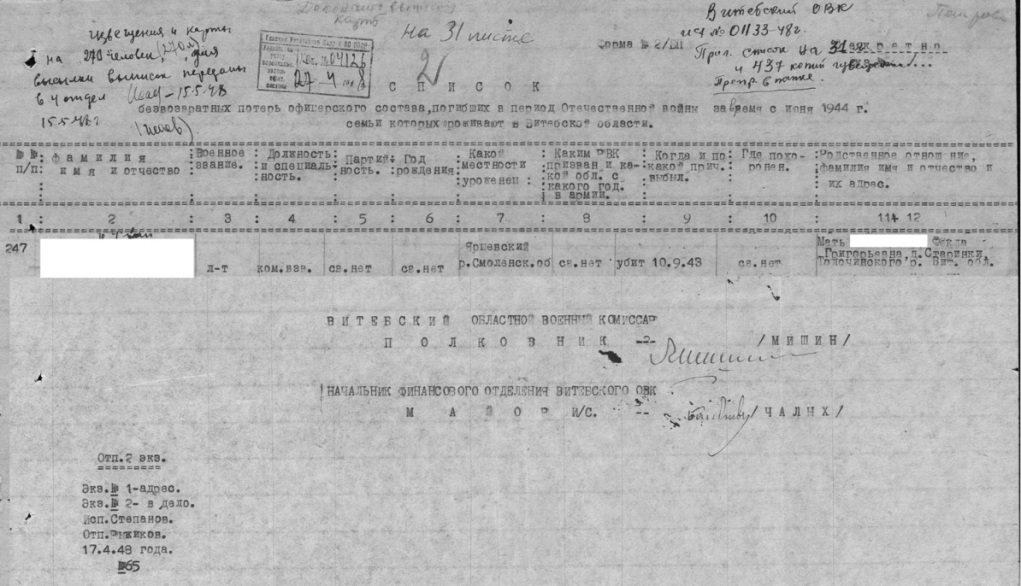 Витебский ОВК
исх № 01133-48г.
На 31 листе
Прил. список на 31
и 437 копий
извещения и карты
на 270 человек,
для
высылки выписок переданы
в 4 отдел
15-5-48
15.5-48г
04126
27-4 1948
Форма № 2/БП
2
С П И С О К
безвозвратных потерь офицерского состава,погибших в период Отечественной войны за время с июня 1944 г.
семьи которых проживают в Витебской области.
№ №: фамилия :Военное : Должность: Партий: Год : Какой : Каким РВК : Когда и по : Где похо- :Родственное отношение,
п/п: имя и отчество :звание. :и специаль: ность. :рождения: местности : призван и ка- :какой прич. : ронен. :фамилия имя и отчество и
ность. уроженец : кой обл. с : выбыл. : их адрес.
какого год.
в армии.
1 : 2 : 3 : 4 : 5 : 6 : 7 : 8 : 9 : 10 : 11+ 12
247 л-т ком.взв. св.нет св.нет Ярцевский св.нет убит 10.9.43 св.нет Мать Фекла
р.Смоленск.об Григорьевна,д.Старинки,
Толочинского р. Вит. обл.
ВИТЕБСКИЙ ОБЛАСТНОЙ ВОЕННЫЙ КОМИССАР
П О Л К О В Н И К -- /МИШИН/
НАЧАЛЬНИК ФИНАНСОВОГО ОТДЕЛЕНИЯ ВИТЕБСКОГО ОВК
М А Й О Р И/С. -- /ЧАЛЫХ/
Отп.2 экз.
Экз.№ 1-адрес.
Экз.№ 2- в дело.
Исп.Степанов.
Отп.Рыжиков.
17.4.48 года.
№65